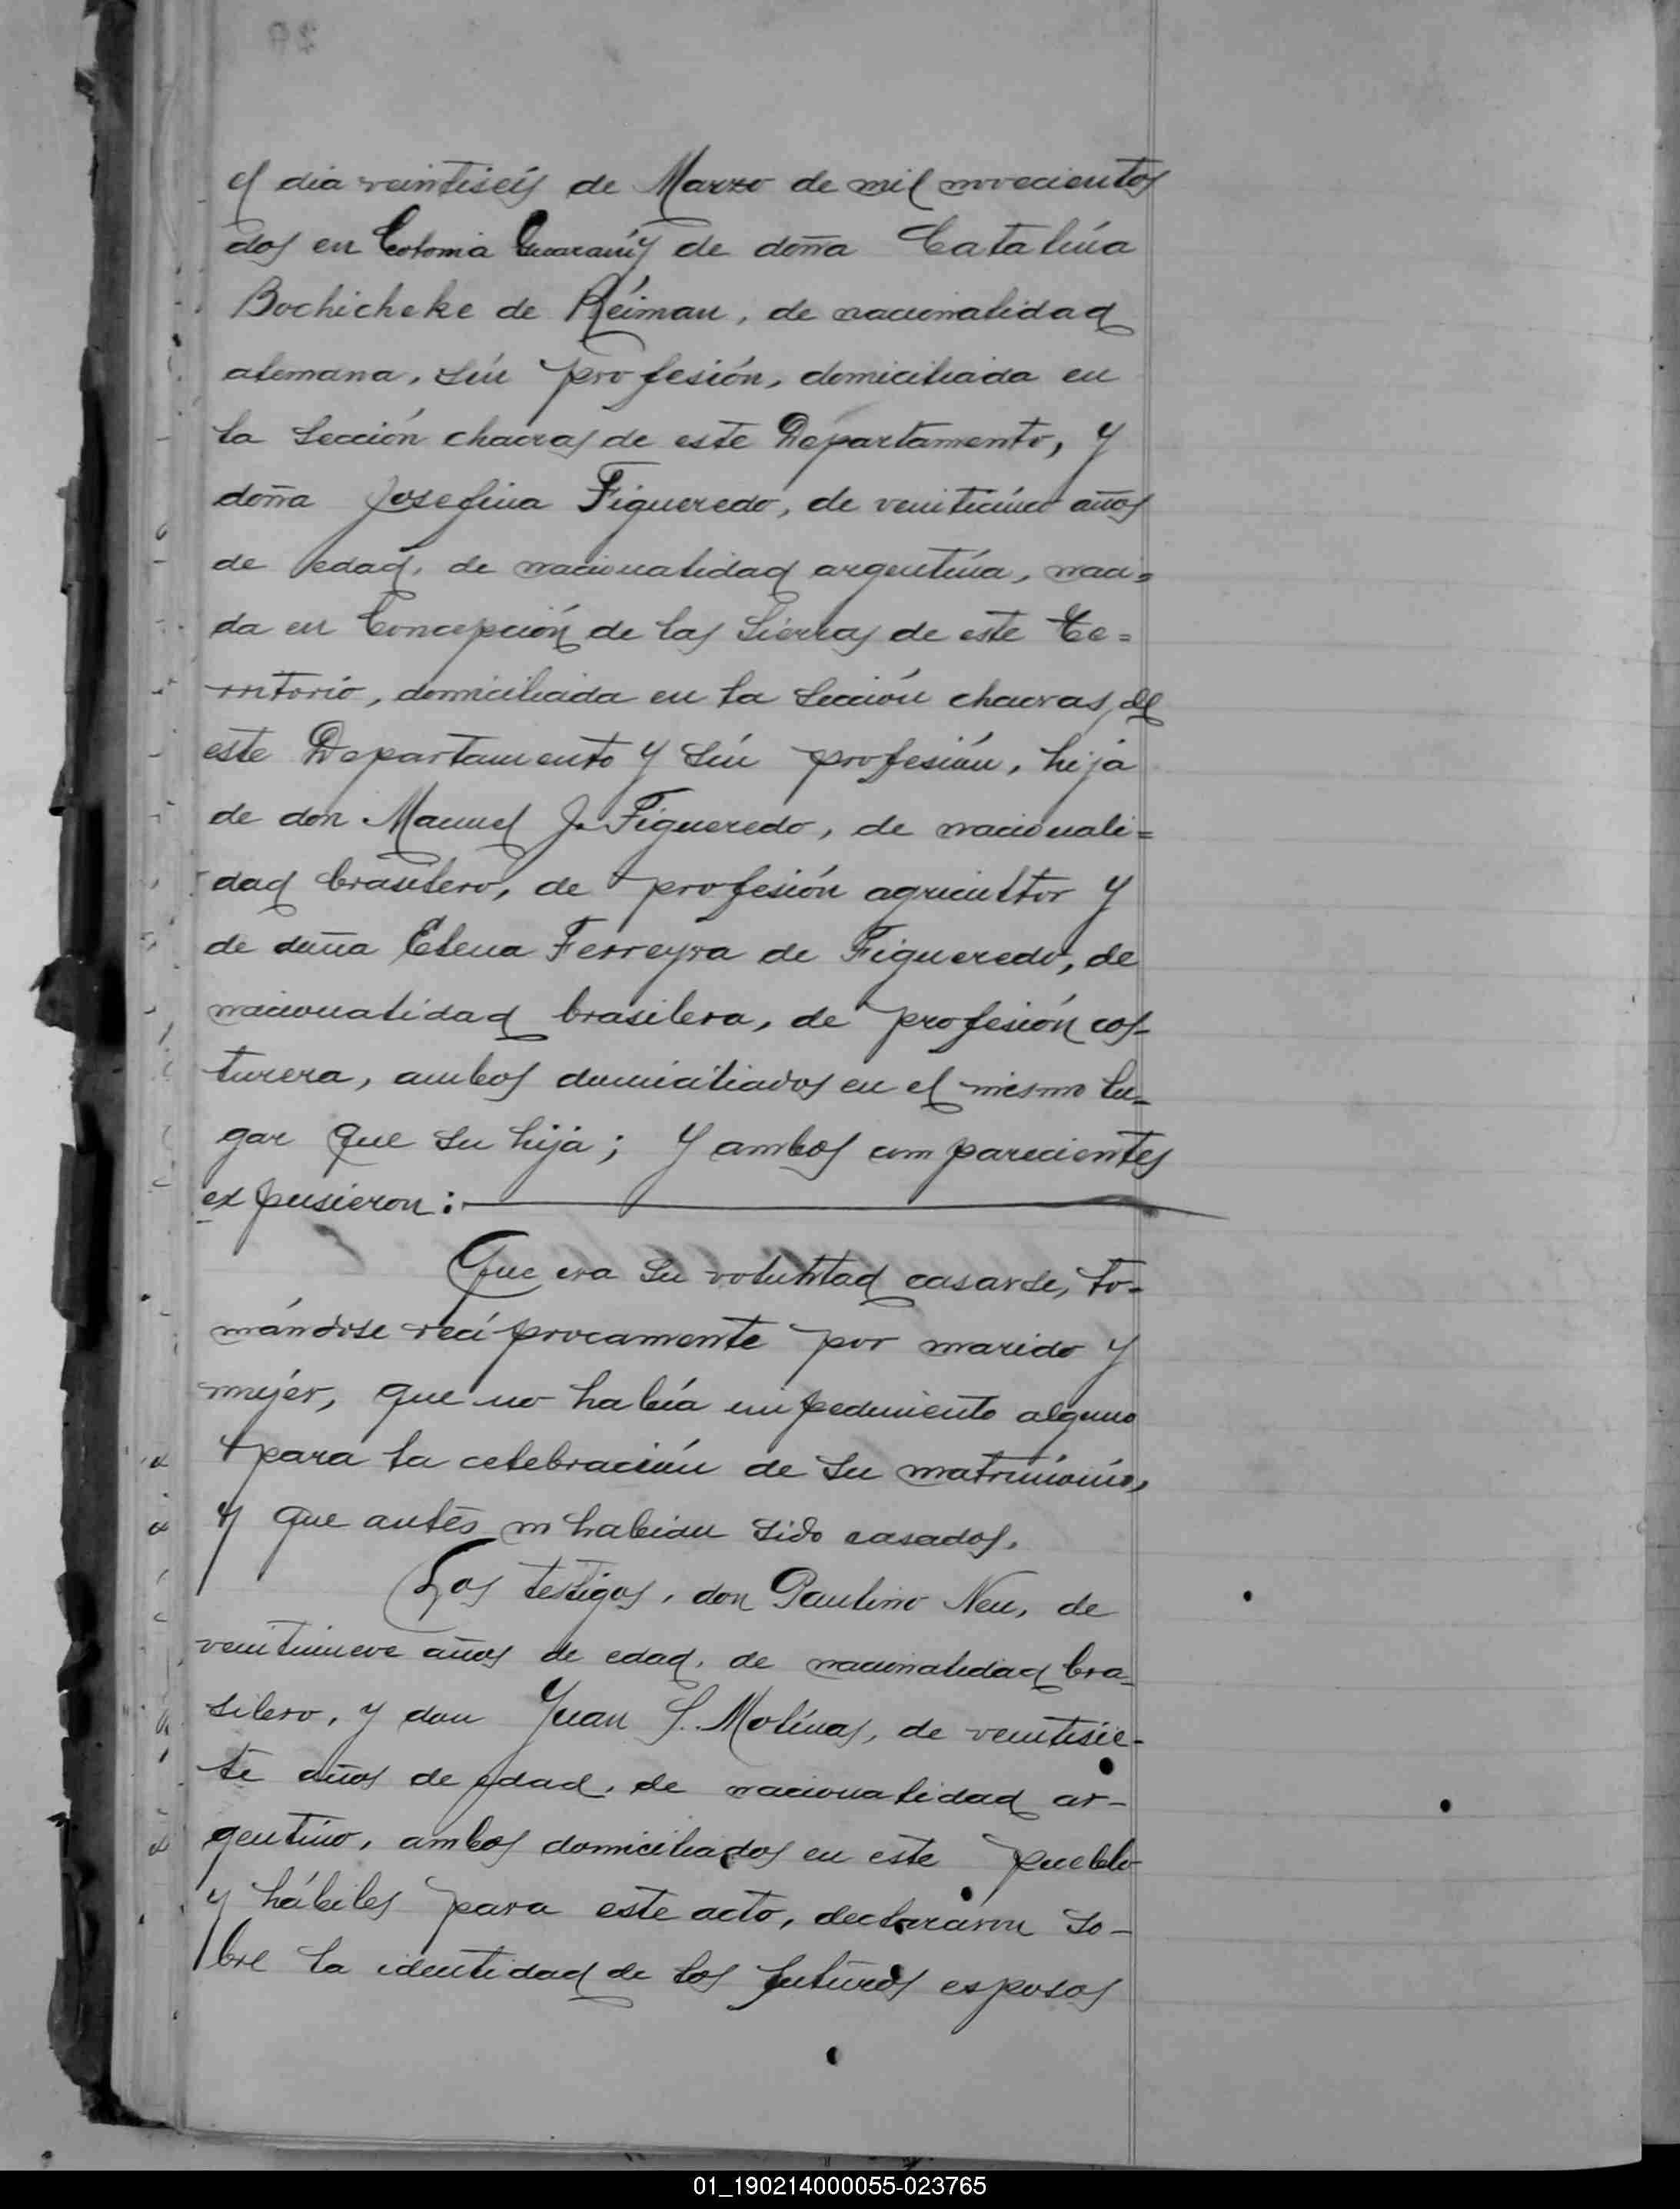 el dia veintiseis de Marzo de mil novecientos
dos en Colonia Guarany de doña Catalina
Bochicheke de Reiman, de nacionalidad
alemana, sin profesión, domiciliada en
la Sección chacras de este Departamento, y
doña Josefina Figueredo, de venticinco años
de edad, de nacionalidad argentina, naci=
da en Concepción de las Sierras de este Te=
rritorio, domiciliada en la Sección chacras de
este Departamento y sin profesión, hija
de don Manuel J. Figueredo, de nacionali=
dad brasilero, de profesión agricultor y
de doña Elena Ferreyra de Figueredo, de
nacionalidad brasilera, de profesión cos-
turera, ambos domiciliados en el mismo lu-
gar que su hija; y ambos comparecientes
expusieron:
Que era su voluntad casarse, to-
mándose recíprocamente por marido y
mujer, que no había impedimento alguno
para la celebración de su matrimonio,
y que antes no habian sido casados.
Los testigos, don Paulino Neu, de
ventinueve años de edad, de nacionalidad bra-
silero, y don Juan S. Molinas, de ventisie-
te años de edad, de nacionalidad ar-
gentino, ambos domiciliados en este pueblo
y hábiles para este acto, declararon so-
bre la identidad de los futuros esposos
01_190214000055-023765